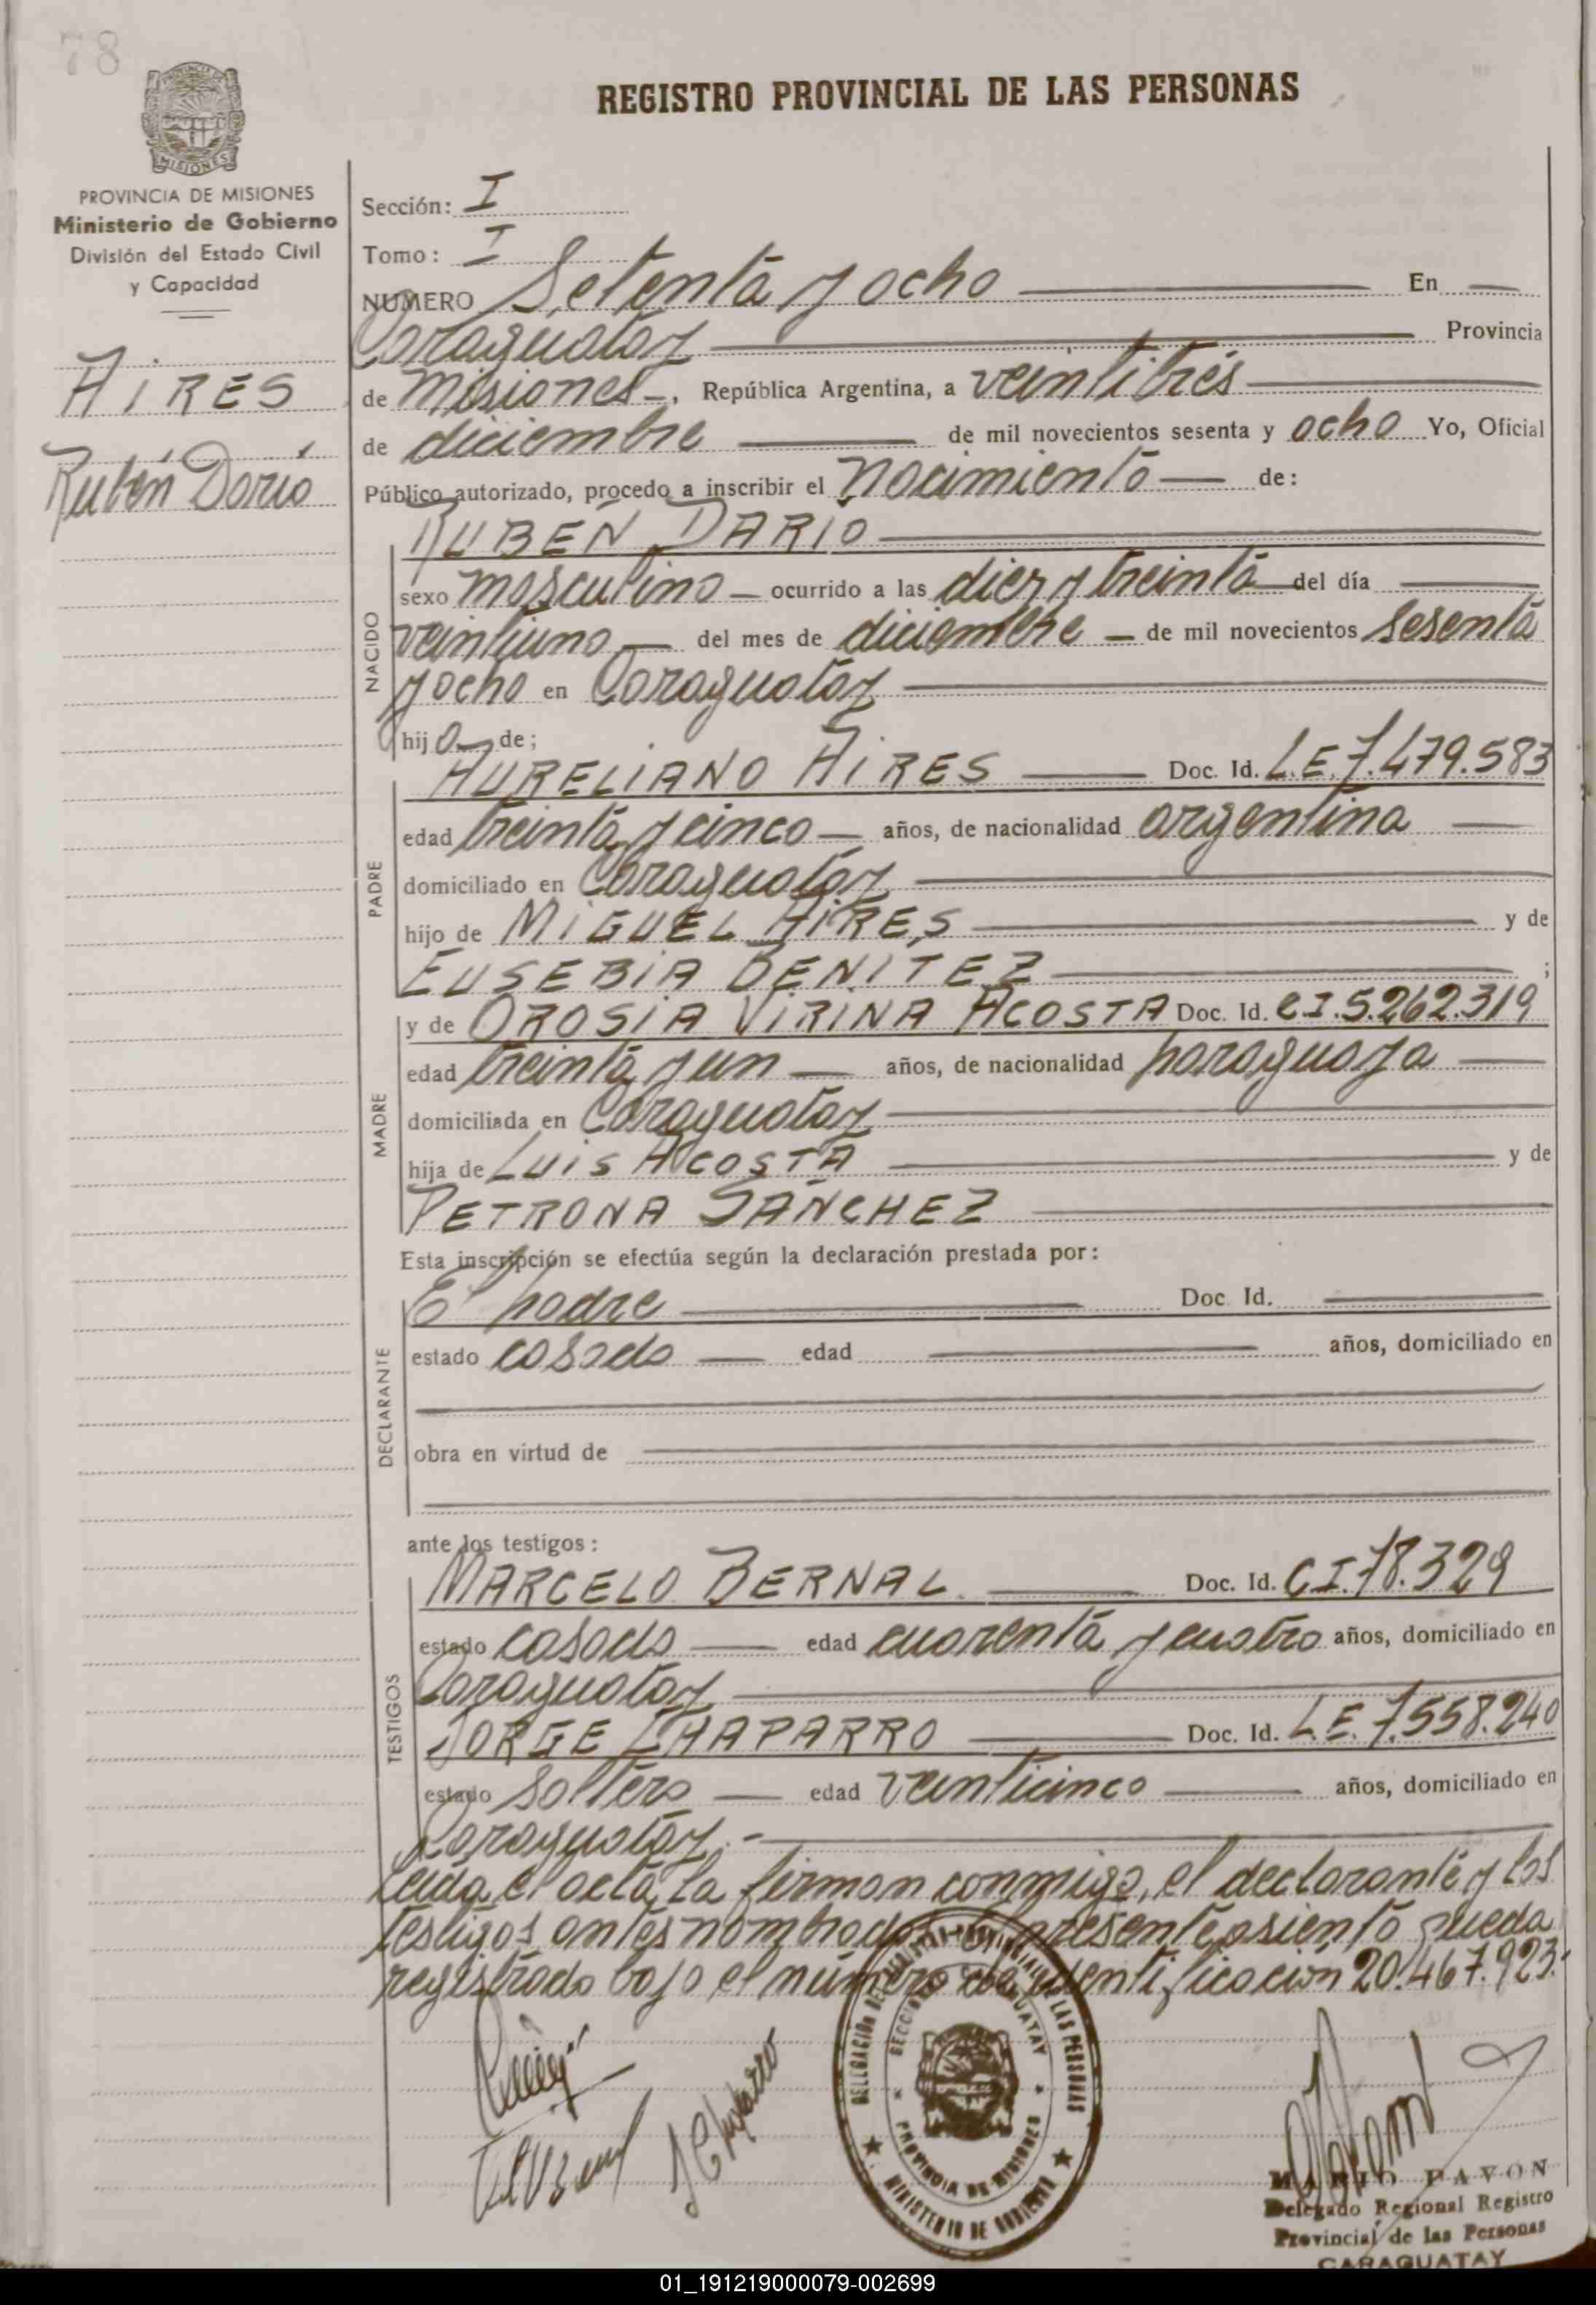 78
REGISTRO PROVINCIAL DE LAS PERSONAS
PROVINCIA DE MISIONES
Ministerio de Gobierno
División del Estado Civil
y Capacidad
AIRES
Rubén Darío
Sección: I
Tomo: I
NUMERO Setenta y ocho En
Caraguatay Provincia
de Misiones -, República Argentina, a veintitrés
de diciembre de mil novecientos sesenta y ocho Yo, Oficial
Público autorizado, procedo a inscribir el nacimiento de:
RUBÉN DARÍO
NACIDO
sexo masculino ocurrido a las diez y treinta del día
veintiuno del mes de diciembre de mil novecientos sesenta
y ocho en Caraguatay
hijo de;
PADRE
AURELIANO AIRES Doc. Id. L.E. 7.479.583
edad treinta y cinco años, de nacionalidad argentina
domiciliado en Caraguatay
hijo de MIGUEL AIRES y de
EUSEBIA BENITEZ ;
MADRE
y de OROSIA VIRINA ACOSTA Doc. Id. C.I. 5.262.319
edad treinta y un años, de nacionalidad paraguaya
domiciliada en Caraguatay
hija de LUIS ACOSTA y de
PETRONA SÁNCHEZ
Esta inscripción se efectúa según la declaración prestada por:
DECLARANTE
El padre Doc. Id.
estado casado edad años, domiciliado en
obra en virtud de
ante los testigos:
TESTIGOS
MARCELO BERNAL Doc. Id. C.I. 78.329
estado casado edad cuarenta y cuatro años, domiciliado en
Caraguatay
JORGE CHAPARRO Doc. Id. L.E. 7.558.240
estado soltero edad veinticinco años, domiciliado en
Caraguatay.-
Leída el acta, la firman conmigo, el declarante y los
testigos antes nombrados. El presente asiento queda
registrado bajo el número de identificación 20.467.923.
J Chaparro
DELEGACIÓN DEL REGISTRO PROVINCIAL DE LAS PERSONAS
MINISTERIO DE GOBIERNO
PROVINCIA DE MISIONES
MARIO PAVON
Delegado Regional Registro
Provincial de las Personas
CARAGUATAY
01_191219000079-002699